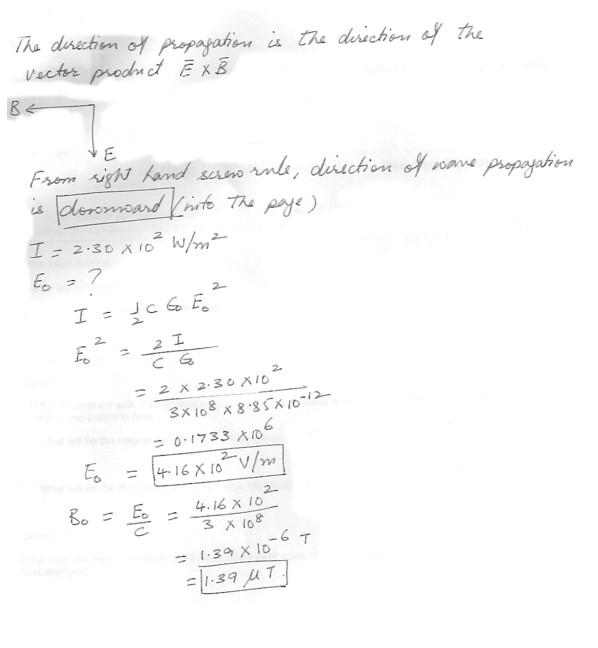 The direction of propagation is the direction of the
vector product E̅ X B̅
B
E
From right hand screw rule, direction of wave propagation
is downward (into the page)
I = 2.30 X 10² W/m²
E₀ = ?
I = ½ C ϵ₀ E₀²
E₀² = 2 I / C ϵ₀
= 2 X 2.30 X 10² / 3X10⁸ X 8.85X10⁻¹²
= 0.1733 X 10⁶
E₀ = 4.16 X 10² V/m
B₀ = E₀ / C = 4.16 X 10² / 3 X 10⁸
= 1.39 X 10⁻⁶ T
= 1.39 μT.